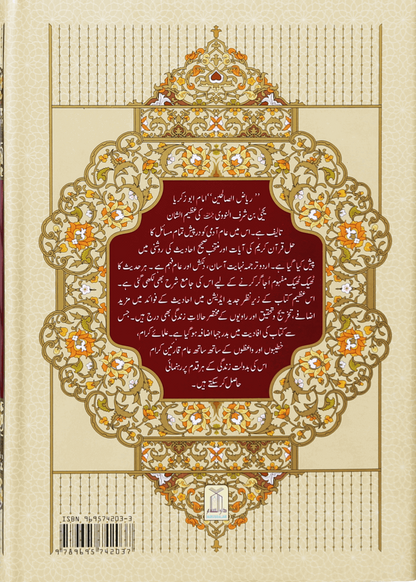 "ریاض الصالحین" امام ابو زکریا
یحییٰ بن شرف النووی رحمہ اللہ کی عظیم الشان
تالیف ہے۔ اس میں عام آدمی کو درپیش تمام مسائل کا
حل قرآن کریم کی آیات اور منتخب صحیح احادیث کی روشنی میں
پیش کیا گیا ہے۔ اردو ترجمہ نہایت آسان، دلکش اور عام فہم ہے۔ ہر حدیث کا
ٹھیک ٹھیک مفہوم اُجاگر کرنے کے لیے اس کی جامع شرح بھی لکھی گئی ہے۔
اس عظیم کتاب کے زیر نظر جدید ایڈیشن میں احادیث کے فوائد میں مزید
اضافے، تخریج و تحقیق اور راویوں کے مختصر حالات زندگی بھی درج ہیں۔ جس
سے کتاب کی افادیت میں بدرجہا اضافہ ہو گیا ہے۔ علمائے کرام،
خطیبوں اور واعظوں کے ساتھ ساتھ عام قارئین کرام
اس کی بدولت زندگی کے ہر قدم پر رہنمائی
حاصل کر سکتے ہیں۔
ISBN 969574203-3
9 789695 742037
دارالسلام